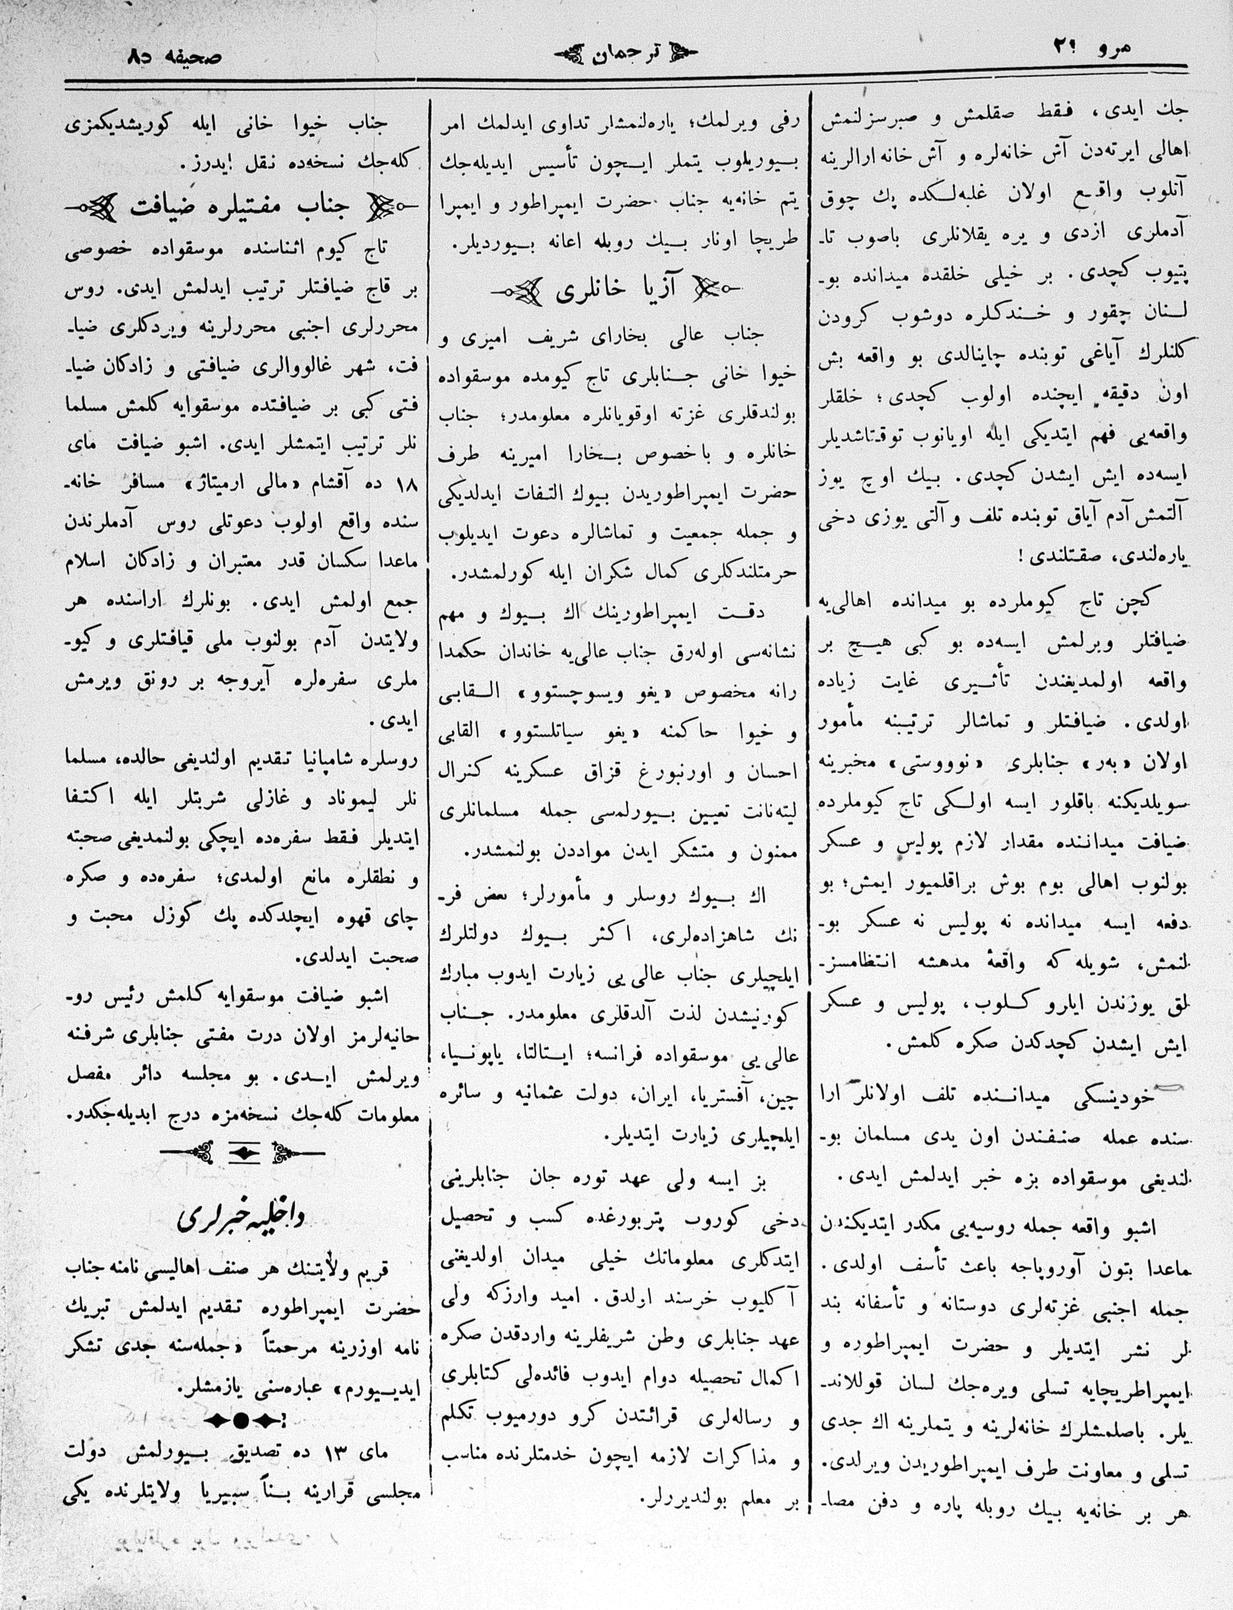 مرو ٢١
ترجمان
صحیفه ٨٥
جك ایدی، فقط صقلمش و صبرسزلنمش
اهالی ایرته‌دن آش خانه‌لره و آش خانه ارالرینه
آتلوب واقع اولان غلبه‌لكده پك چوق
آدملری ازدی و یره یقلانلری باصوب تا-
پتیوب كچدی. بر خیلی خلقده میدانده بو-
لنان چقور و خندكلره دوشوب كرودن
كلنلرك آیاغی توبنده چاینالدی بو واقعه بش
اون دقیقه ایچنده اولوب كچدی؛ خلقلر
واقعه‌یی فهم ایتدیكی ایله اویانوب توقتاشدیلر
ایسه‌ده ایش ایشدن كچدی. بیك اوچ یوز
آلتمش آدم آیاق توبنده تلف و آلتی یوزی دخی
یاره‌لندی، صقتلندی!
كچن تاج كیوملرده بو میدانده اهالی‌یه
ضیافتلر ویرلمش ایسه‌ده بو كبی هیچ بر
واقعه اولمدیغندن تأثیری غایت زیاده
اولدی. ضیافتلر و تماشالر ترتیبنه مأمور
اولان «به‌ر» جنابلری «نووستی» مخبرینه
سویلدیكنه باقلور ایسه اولكی تاج كیوملرده
ضیافت میداننده مقدار لازم پولیس و عسكر
بولنوب اهالی بوم بوش براقلمیور ایمش؛ بو
دفعه ایسه میدانده نه پولیس نه عسكر بو-
لنمش، شویله كه واقعۀ مدهشه انتظامسز-
لق یوزندن ایلرو كلوب، پولیس و عسكر
ایش ایشدن كچدكدن صكره كلمش.
خودینسكی میداننده تلف اولانلر ارا
سنده عمله صنفندن اون یدی مسلمان بو-
لندیغی موسقواده بزه خبر ایدلمش ایدی.
اشبو واقعه جمله روسیه‌یی مكدر ایتدیكندن
ماعدا بتون آوروپاجه باعث تأسف اولدی.
جمله اجنبی غزته‌لری دوستانه و تأسفانه بند
لر نشر ایتدیلر و حضرت ایمپراطوره و
ایمپراطریچایه تسلی ویره‌جك لسان قوللاند-
یلر. باصلمشلرك خانه‌لرینه و یتملرینه اك جدی
تسلی و معاونت طرف ایمپراطوریدن ویرلدی.
هر بر خانه‌یه بیك روبله پاره و دفن مصا-
رفی ویرلمك؛ یاره‌لنمشلر تداوی ایدلمك امر
بیوریلوب یتملر ایچون تأسیس ایدیله‌جك
یتم خانه‌یه جناب حضرت ایمپراطور و ایمپرا
طریچا اونار بیك روبله اعانه بیوردیلر.
آزیا خانلری
جناب عالی بخارای شریف امیری و
خیوا خانی جنابلری تاج كیومده موسقواده
بولندقلری غزته اوقویانلره معلومدر؛ جناب
خانلره و باخصوص بخارا امیرینه طرف
حضرت ایمپراطوریدن بیوك التفات ایدلدیكی
و جمله جمعیت و تماشالره دعوت ایدیلوب
حرمتلندكلری كمال شكران ایله كورلمشدر.
دقت ایمپراطورینك اك بیوك و مهم
نشانه‌سی اوله‌رق جناب عالی‌یه خاندان حكمدا
رانه مخصوص «یغو ویسوچستوو» القابی
و خیوا حاكمنه «یغو سیاتلستوو» القابی
احسان و اورنبورغ قزاق عسكرینه كنرال
لیته‌نانت تعیین بیورلمسی جمله مسلمانلری
ممنون و متشكر ایدن موادن بولنمشدر.
اك بیوك روسلر و مأمورلر؛ بعض فر-
نك شاهزاده‌لری، اكثر بیوك دولتلرك
ایلچیلری جناب عالی یی زیارت ایدوب مبارك
كورنیشدن لذت آلدقلری معلومدر. جناب
عالی‌یی موسقواده فرانسه؛ ایتالتا، یاپونیا،
چین، آفستریا، ایران، دولت عثمانیه و سائره
ایلچیلری زیارت ایتدیلر.
بز ایسه ولی عهد توره جان جنابلرینی
دخی كوروب پتربورغده كسب و تحصیل
ایتدكلری معلوماتك خیلی میدان اولدیغنی
آكلیوب خرسند اولدق. امید وارزكه ولی
عهد جنابلری وطن شریفلرینه واردقدن صكره
اكمال تحصیله دوام ایدوب فائده‌لی كتابلری
و رساله‌لری قرائتدن كرو دورمیوب تكلم
و مذاكرات لازمه ایچون خدمتلرنده مناسب
بر معلم بولندیررلر.
جناب خیوا خانی ایله كوریشدیكمزی
كله‌جك نسخه‌ده نقل ایدرز.
جناب مفتیلره ضیافت
تاج كیوم اثناسنده موسقواده خصوصی
بر قاج ضیافتلر ترتیب ایدلمش ایدی. روس
محررلری اجنبی محررلرینه ویردكلری ضیا-
فت، شهر غالووالری ضیافتی و زادكان ضیا-
فتی كبی بر ضیافتده موسقوایه كلمش مسلما
نلر ترتیب ایتمشلر ایدی. اشبو ضیافت مای
١٨ ده آقشام «مالی ارمیتاژ» مسافر خانه-
سنده واقع اولوب دعوتلی روس آدملرندن
ماعدا سكسان قدر معتبران و زادكان اسلام
جمع اولمش ایدی. بونلرك اراسنده هر
ولایتدن آدم بولنوب ملی قیافتلری و كیو-
ملری سفره‌لره آیروجه بر رونق ویرمش
ایدی.
روسلره شامپانیا تقدیم اولندیغی حالده، مسلما
نلر لیموناد و غازلی شربتلر ایله اكتفا
ایتدیلر فقط سفره‌ده ایچكی بولنمدیغی صحبته
و نطقلره مانع اولمدی؛ سفره‌ده و صكره
چای قهوه ایچلدكده پك كوزل محبت و
صحبت ایدلدی.
اشبو ضیافت موسقوایه كلمش رئیس رو-
حانیه‌لرمز اولان درت مفتی جنابلری شرفنه
ویرلمش ایدی. بو مجلسه دائر مفصل
معلومات كله‌جك نسخه‌مزه درج ایدیله‌جكدر.
داخلیه خبرلری
قریم ولایتنك هر صنف اهالیسی نامنه جناب
حضرت ایمپراطوره تقدیم ایدلمش تبریك
نامه اوزرینه مرحمتاً «جمله‌سنه جدی تشكر
ایدیورم» عباره‌سنی یازمشلر.
مای ١٣ ده تصدیق بیورلمش دولت
مجلسی قرارینه بناً سبیریا ولایتلرنده یكی